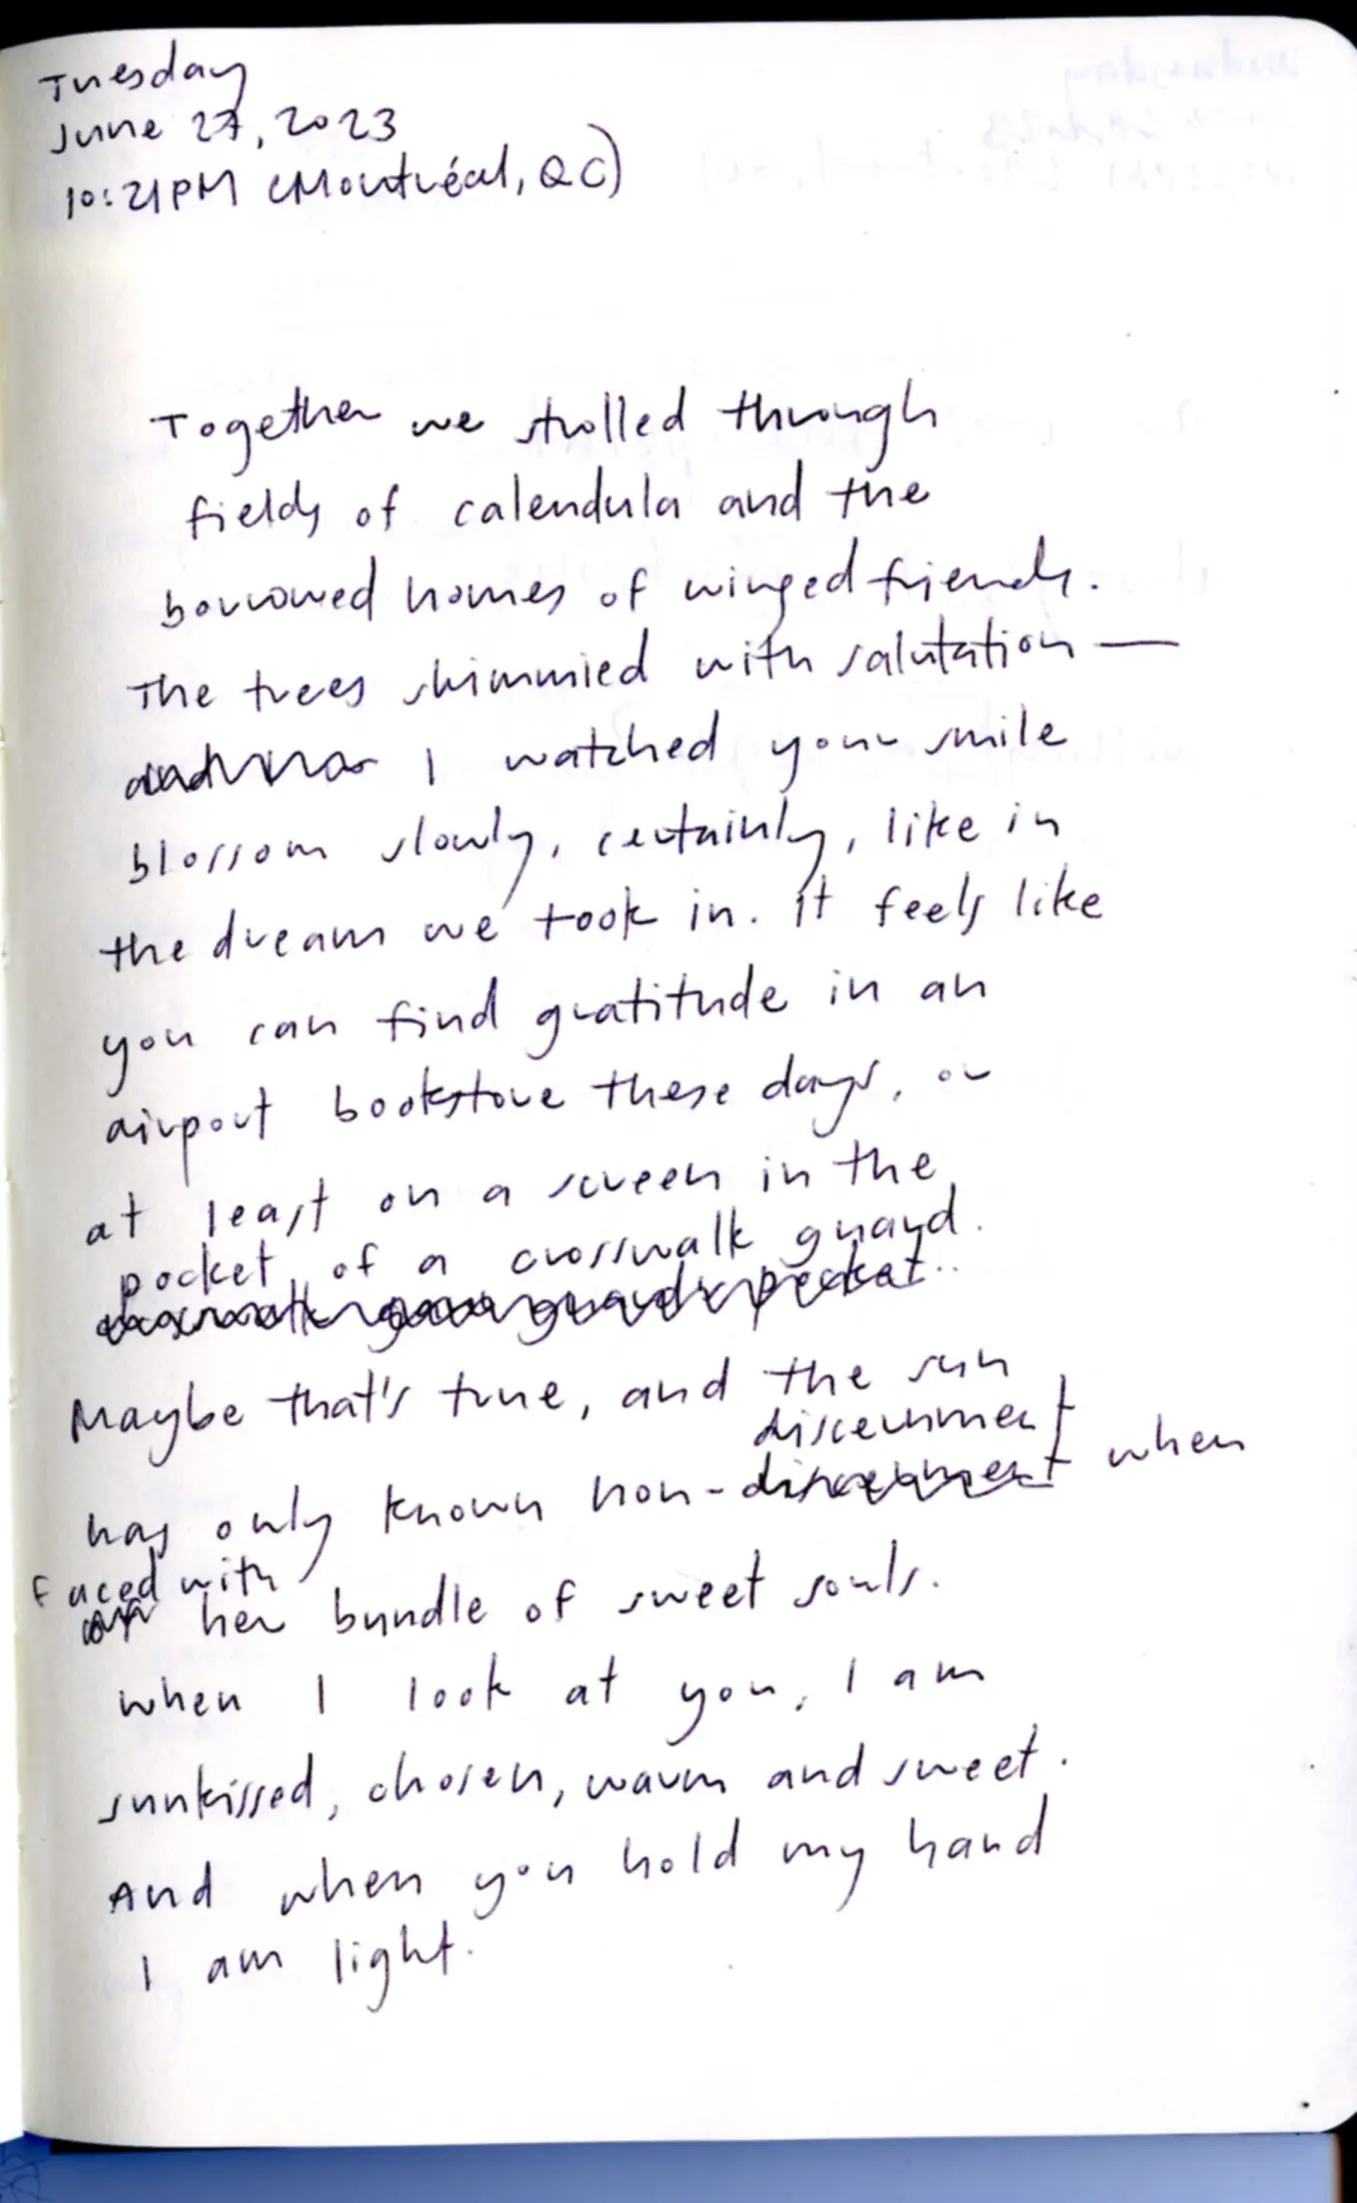 Tuesday
June 27, 2023
10:21PM (Montréal, QC)
Together we strolled through
fields of calendula and the
borrowed homes of winged friends.
The trees shimmied with salutation —
I watched your smile
blossom slowly, certainly, like in
the dream we took in. It feels like
you can find gratitude in an
airport bookstore these days, or
at least on a screen in the
pocket of a crosswalk guard.
Maybe that's true, and the sun
discernment
has only known non-discernment when
faced with
her bundle of sweet souls.
when I look at you, I am
sunkissed, chosen, warm and sweet.
And when you hold my hand
I am light.